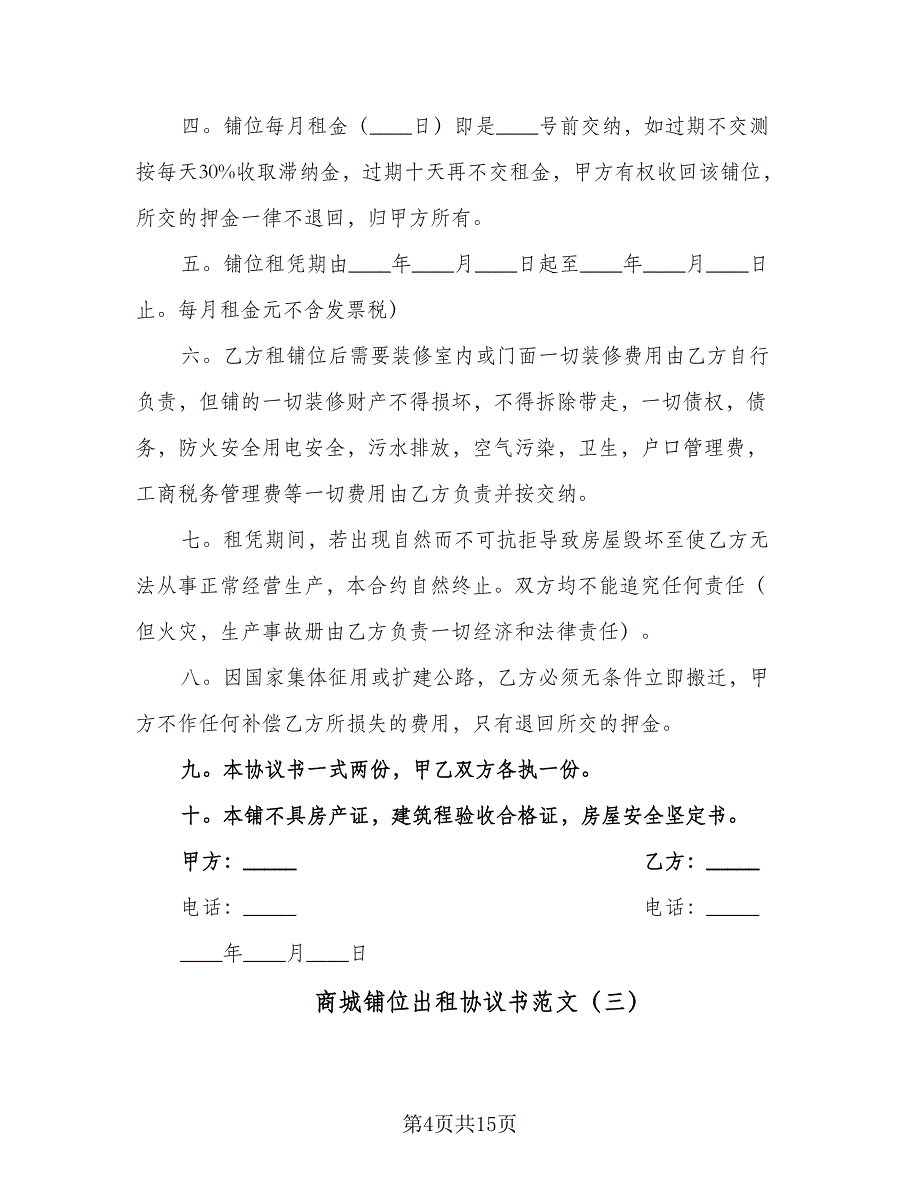 四。铺位每月租金（____日）即是____号前交纳，如过期不交测
按每天30%收取滞纳金，过期十天再不交租金，甲方有权收回该铺位，
所交的押金一律不退回，归甲方所有。
五。铺位租凭期由____年____月____日起至____年____月____日
止。每月租金元不含发票税）
六。乙方租铺位后需要装修室内或门面一切装修费用由乙方自行
负责，但铺的一切装修财产不得损坏，不得拆除带走，一切债权，债
务，防火安全用电安全，污水排放，空气污染，卫生，户口管理费，
工商税务管理费等一切费用由乙方负责并按交纳。
七。租凭期间，若出现自然而不可抗拒导致房屋毁坏至使乙方无
法从事正常经营生产，本合约自然终止。双方均不能追究任何责任（
但火灾，生产事故册由乙方负责一切经济和法律责任）。
八。因国家集体征用或扩建公路，乙方必须无条件立即搬迁，甲
方不作任何补偿乙方所损失的费用，只有退回所交的押金。
九。本协议书一式两份，甲乙双方各执一份。
十。本铺不具房产证，建筑程验收合格证，房屋安全坚定书。
甲方：_____ 乙方：_____
电话：_____ 电话：_____
____年____月____日
商城铺位出租协议书范文（三）
第4页共15页